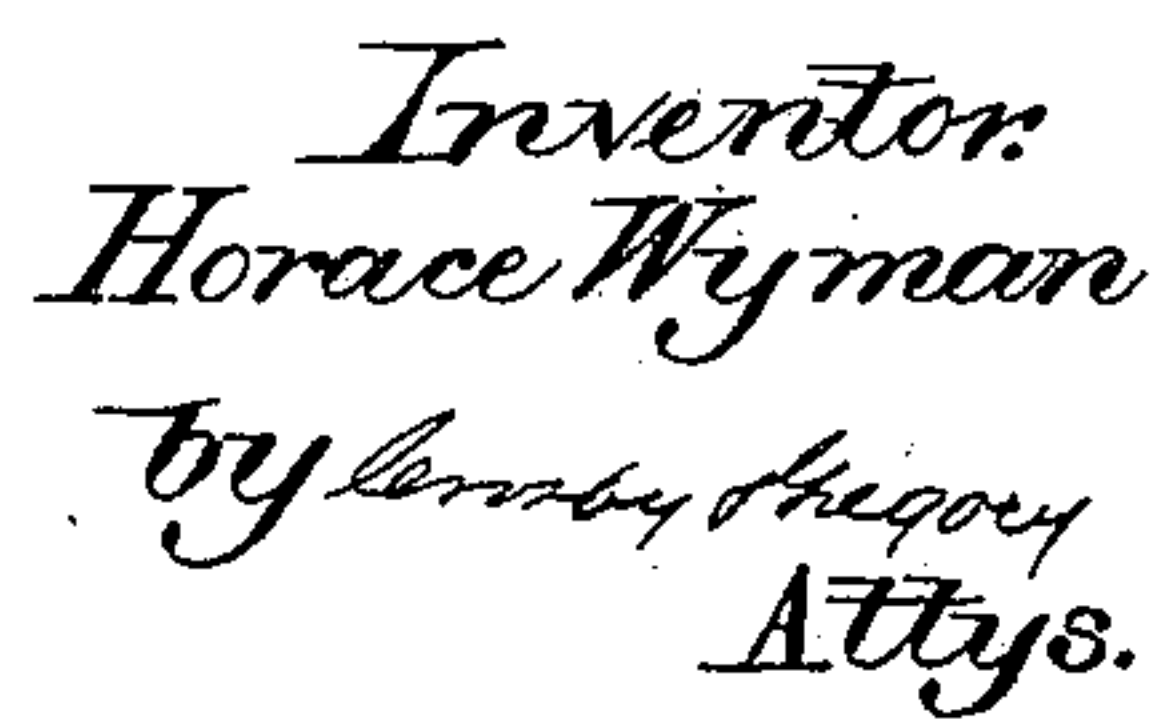 Inventor.
Horace Wyman
by Crosby & Gregory
Attys.